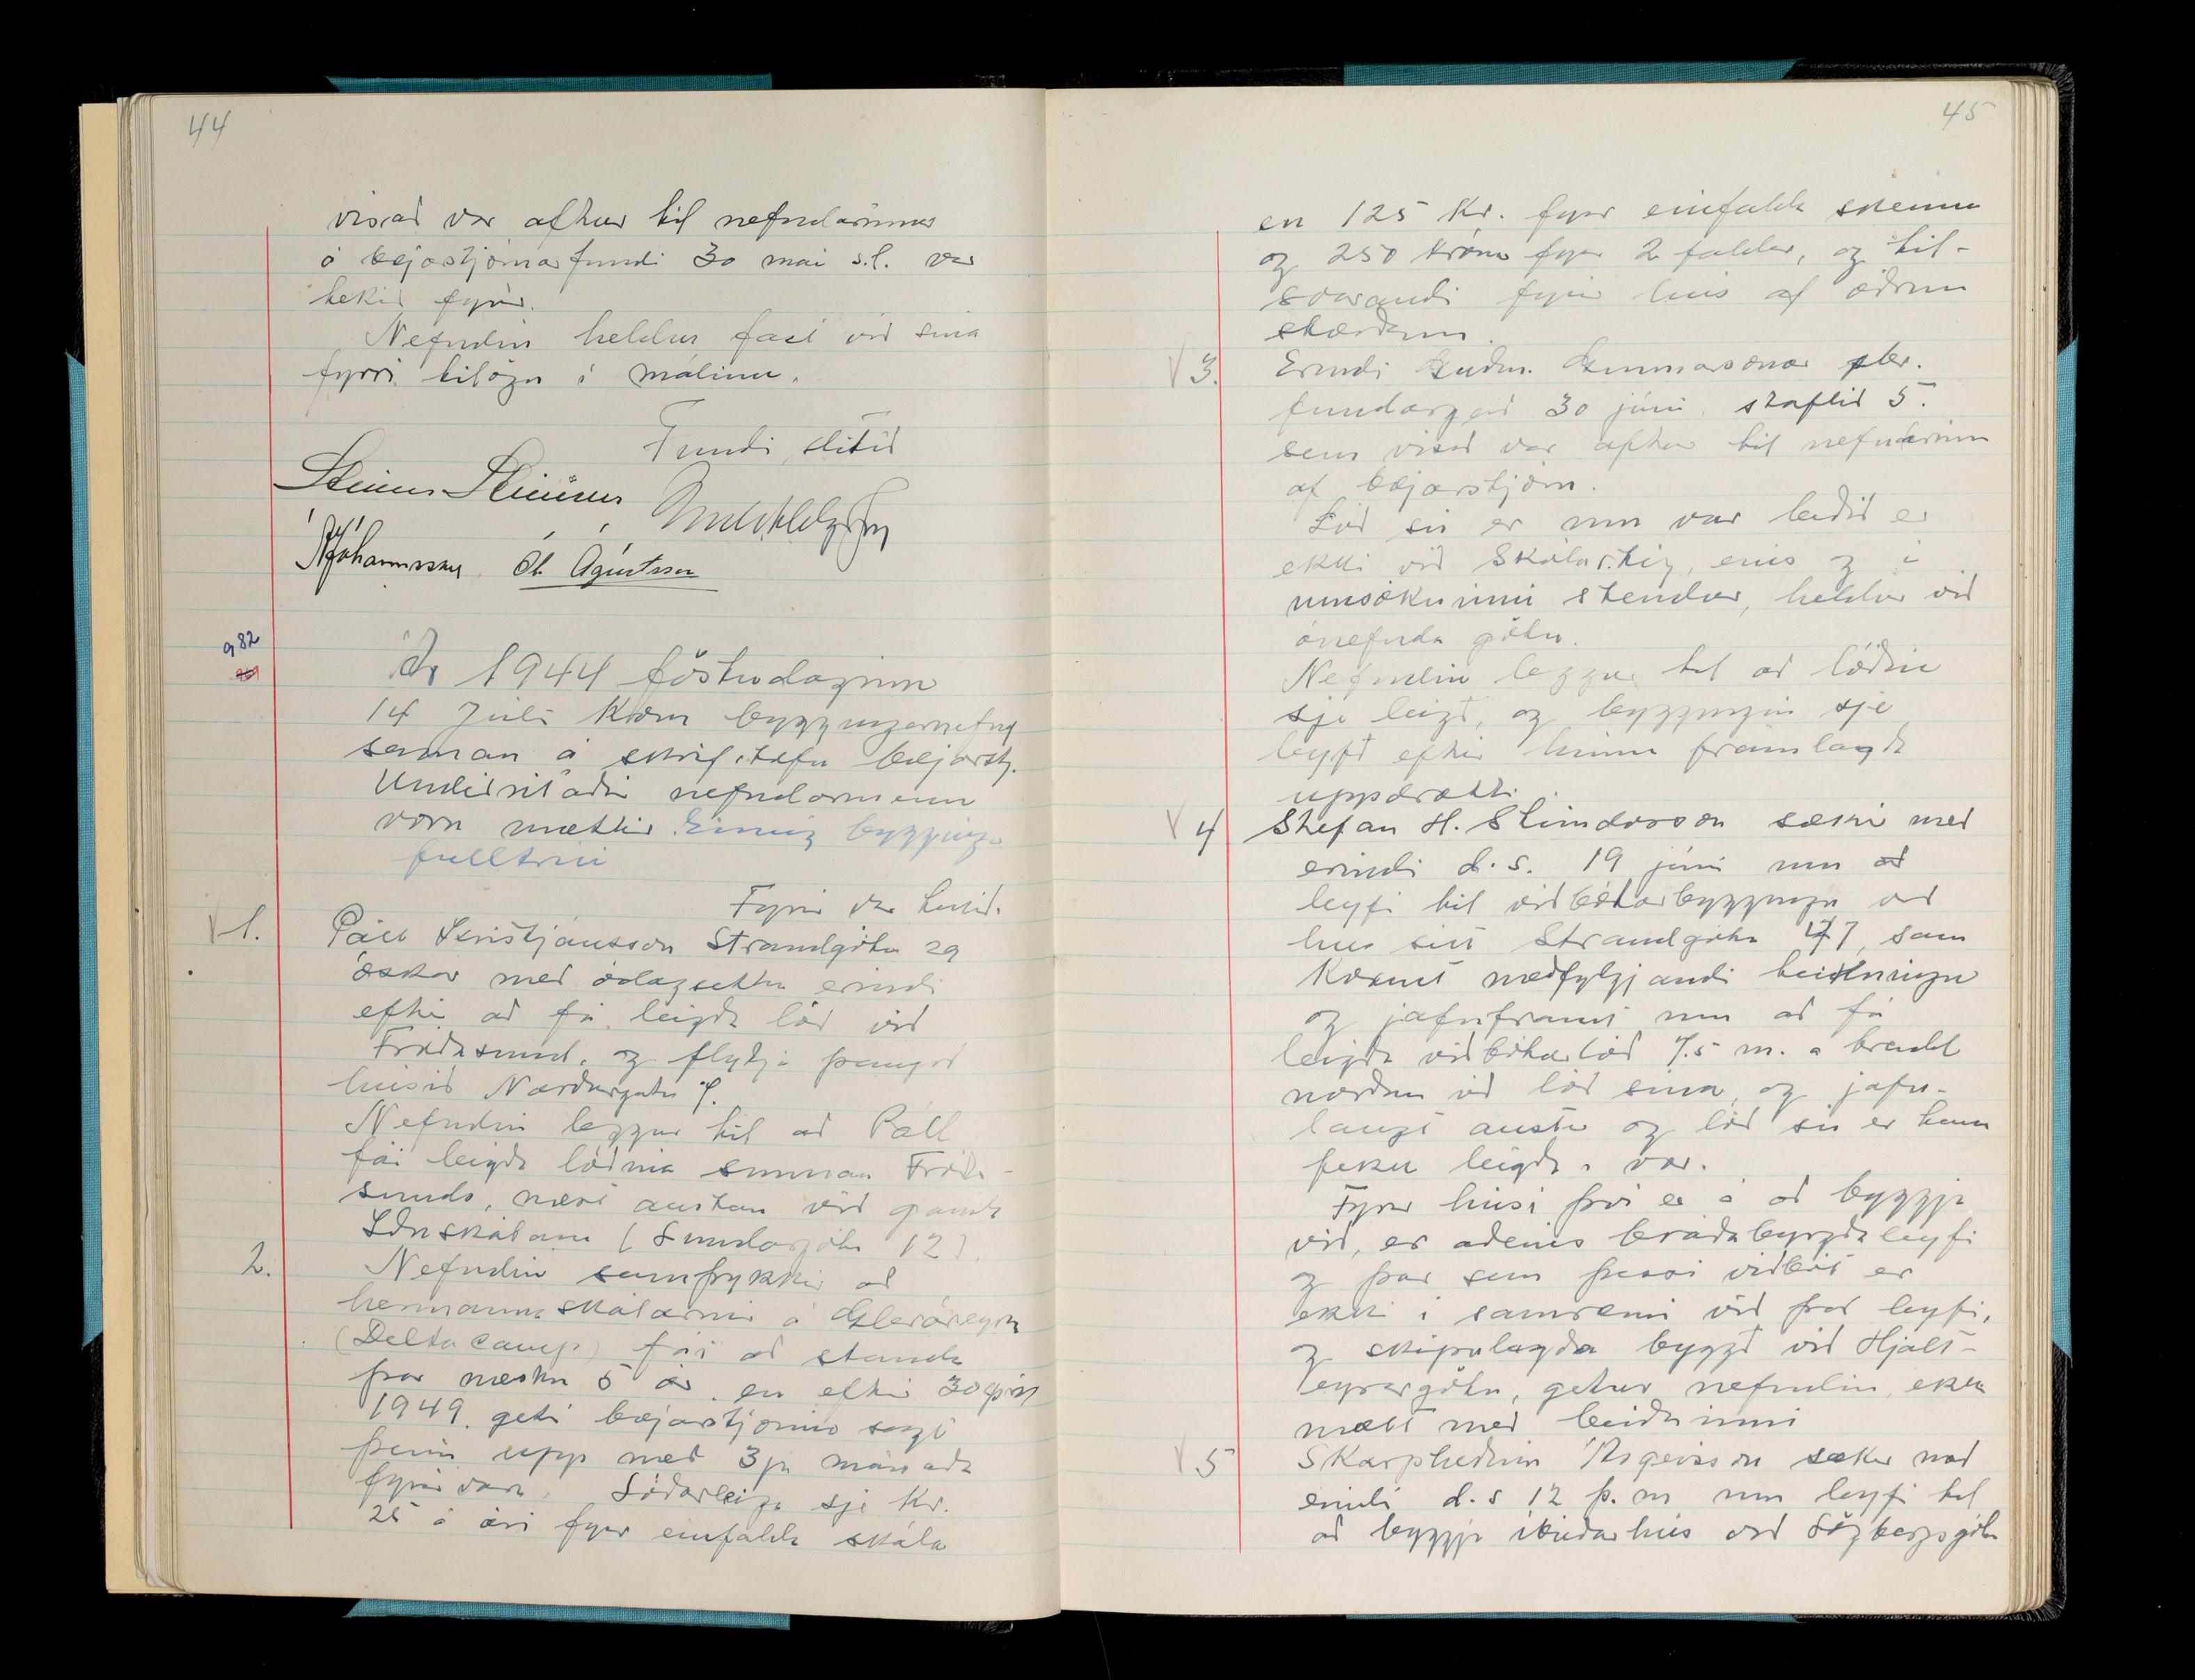 44
vísað var aftur til nefndarinnar
á bæjastjórnarfundi 30 maí s.l. var
tekið fyrir.
Nefndin heldur fast við sína
fyrri tilögu í málinu.
Fundi slitið
Steinn Steinsen
Jóhannesson Ól. Ágústsson
982
Ár 1944 föstudaginn
14 Júlí kom byggingarnefnd
saman á skrifstofu bæjarstj.
Undirritaðir nefndarmenn
voru mættir. Einnig bygginga
fulltrúi
Fyrir var tekið.
V 1. Páll Kristjánsson Strandgötu 29
óskar með ódagsettu erindi
eftir að fá leigða lóð við
Fróðasund, og flytja þangað
húsið Norðurgata 7.
Nefndin leggur til að Páll
fái leigða lóðina sunnan Fróða-
sunds, næst austan við gamla
Lónskálann (Gundargötu 12).
2. Nefndin samþykkir að
hermannaskálarnir á Gleráreyrum
(Delta camp) fái að standa
þar næstu 5 ár, en eftir 30 júní
1949. geti bæjarstjórnin sagt
þeim upp með 3ja mánaða
fyrirvara. Lóðarleiga sje kr.
25 á ári fyrir einfalda skála
45
en 125 kr. fyrir einfalda skemmu
og 250 krónur fyrir 2 faldar, og til-
svarandi fyrir hús af öðrum
stærðum.
V 3. Erindi Guðm. Gunnarsonar sbr.
fundargerð 30 júní, staflið 5.
sem vísað var aftur til nefndarinnar
af bæjarstjórn.
Lóð sú er um var beðið er
ekki við Skólastíg, eins og í
umsókninni stendur, heldur við
ónefnda götu.
Nefndin leggur til að lóðin
sje leigð, og byggingin sje
leyfð eftir hinum framlagða
uppdrætti.
V 4 Stefan H. Steindorsson sækir með
erindi d.s. 19 júní um að
leyfi til viðbótarbyggingu við
hús sitt Strandgötu 47, sam
kvæmt meðfylgjandi teikningu
og jafnframt um að fá
leigða viðbótarlóð 7.5 m. á breidd
norðan við lóð sína, og jafn-
langt austur og lóð sú er hann
fekk leigða í vor.
Fyrir húsi því er á að byggja
við, er aðeins bráðabyrgðaleyfi
og þar sem þessi viðbót er
ekki í samræmi við það leyfi,
og skipulagða byggð við Hjalt-
eyrargötu, getur nefndin ekki
mælt með beiðninni
V 5 Skarphéðinn Ásgeirsson sækir með
erindi d.s 12 þ.m um leyfi til
að byggja íbúðarhús við Lögbergsgötu